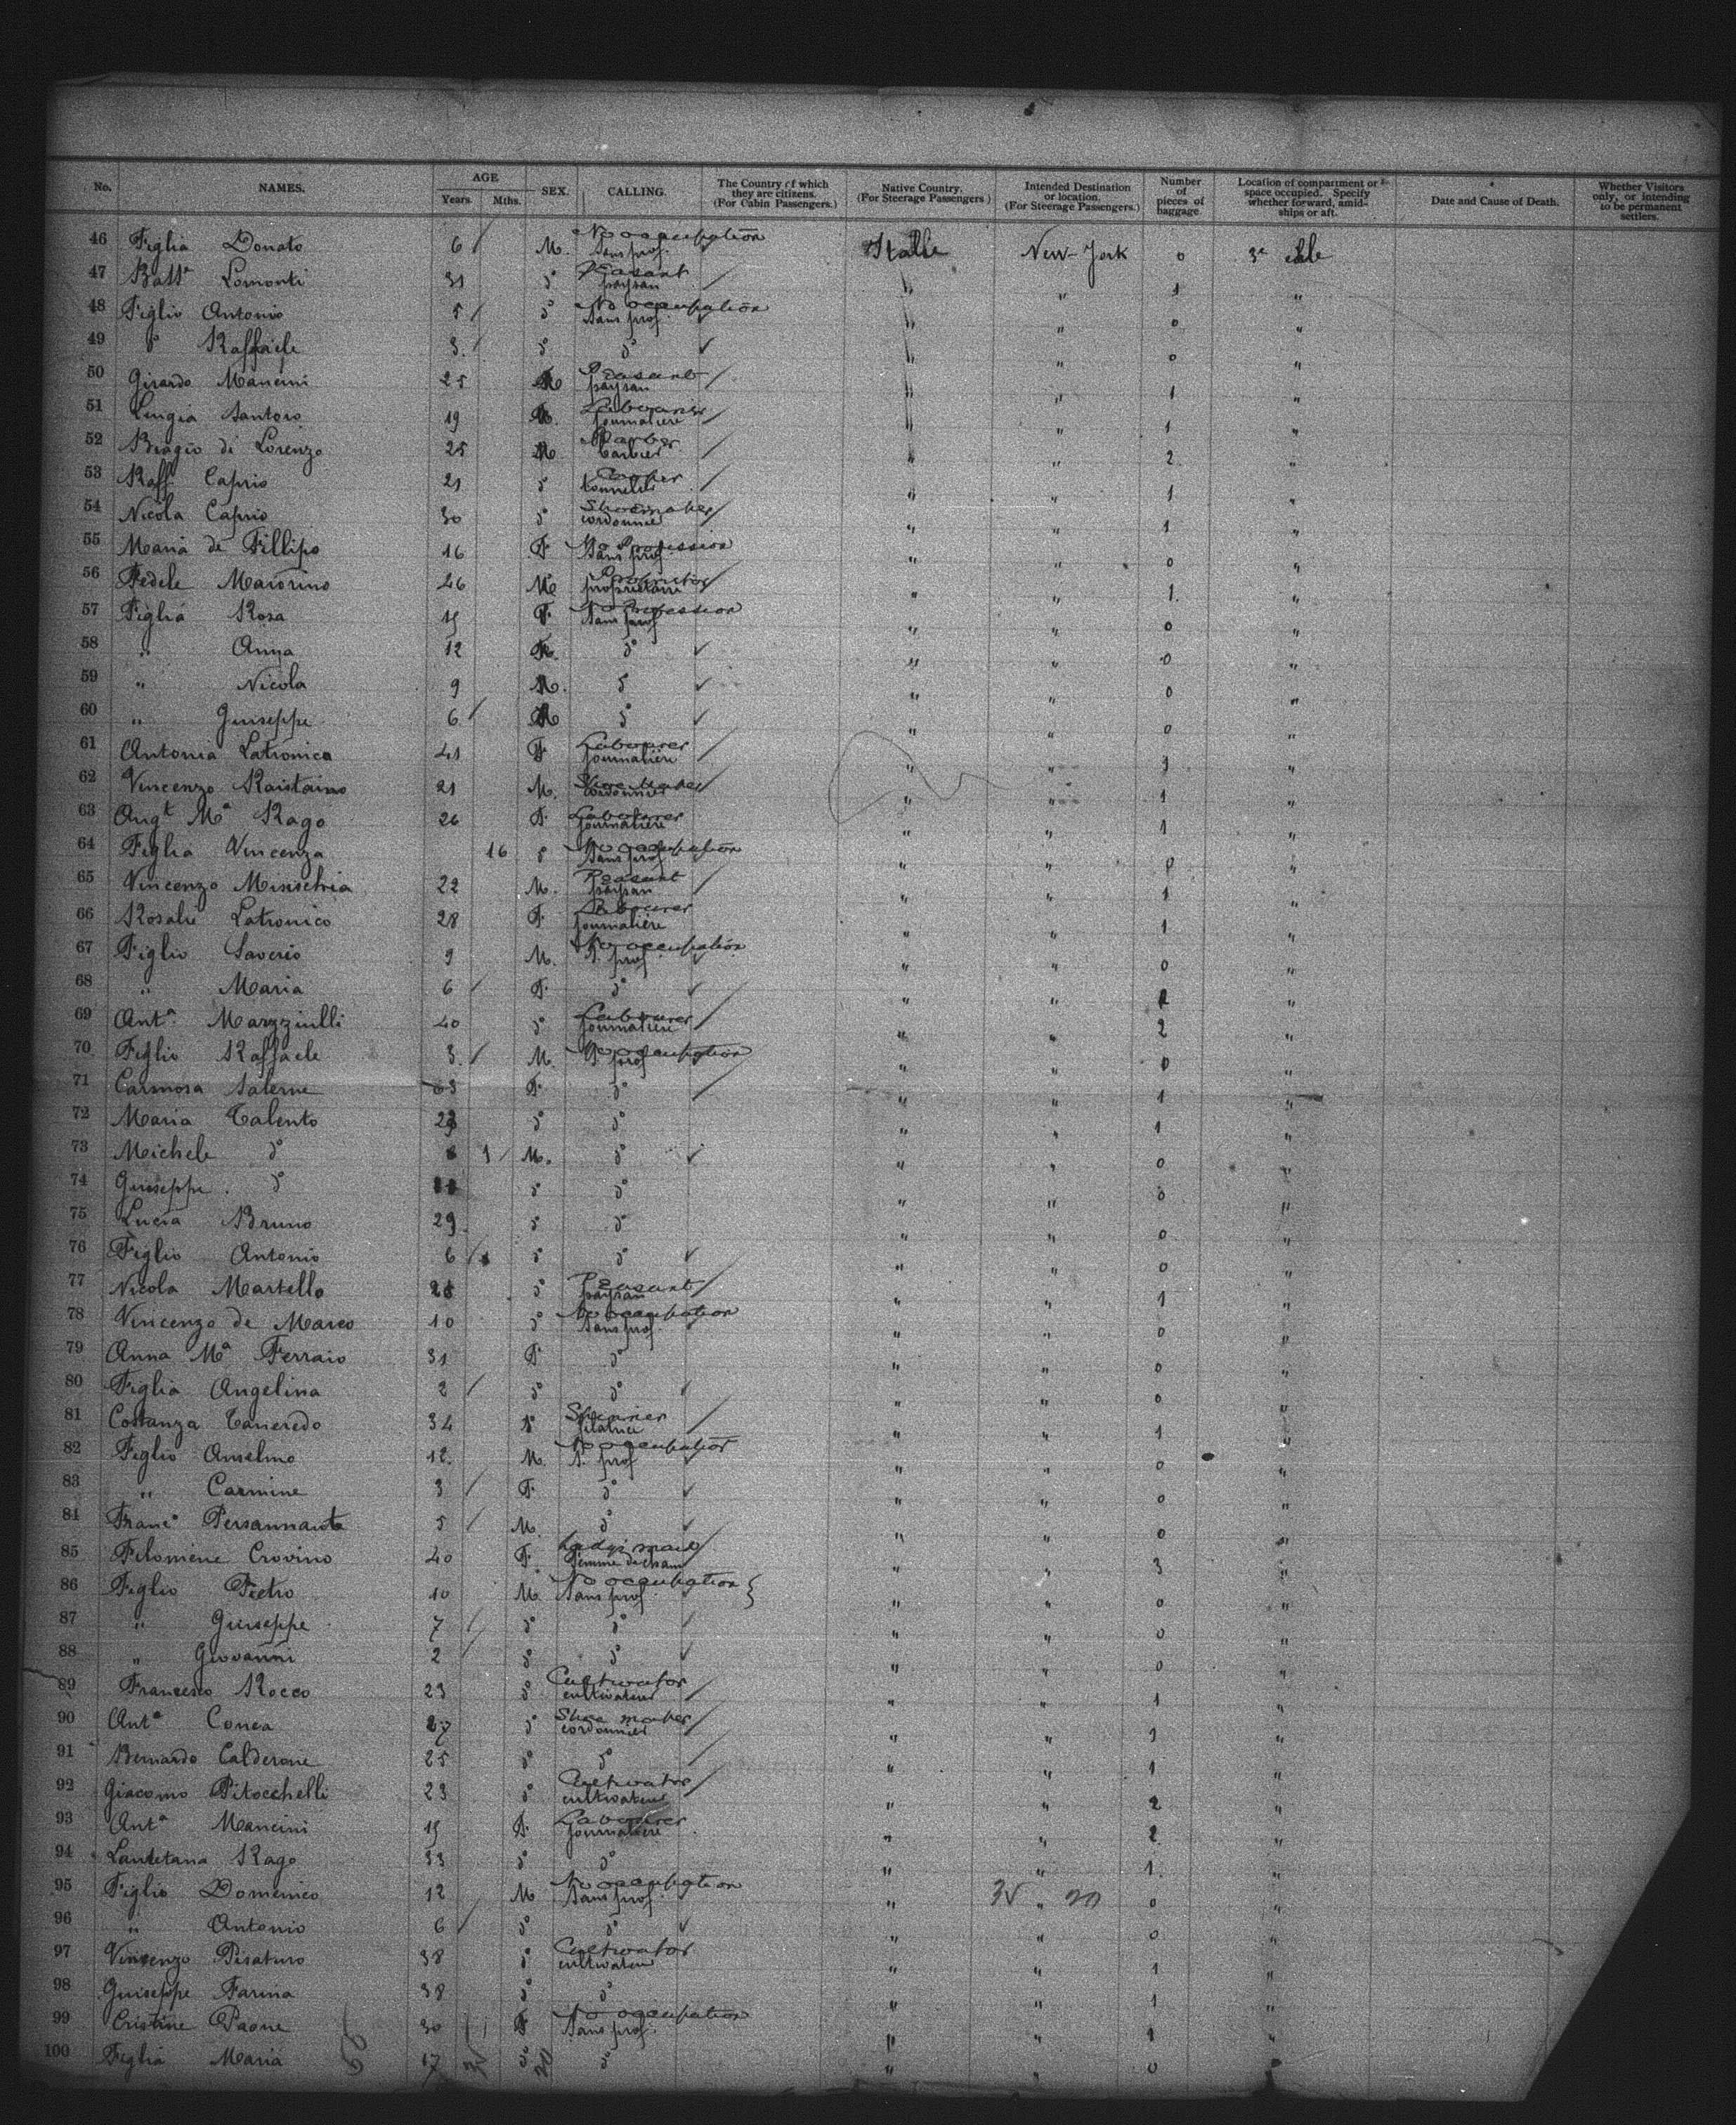 No. NAMES. AGE Years. Mths. SEX. CALLING. The Country of which they are citizens. (For Cabin Passengers.) Native Country. (For Steerage Passengers) Intended Destination or location. (For Steerage Passengers.) Number of pieces of baggage Location of compartment or space occupied. Specify whether forward, amidships or aft. Date and Cause of Death. Whether Visitors only, or intending to be permanent settlers.
46 Figlia Donato 6 M. No occupation Sans prof. Italie New-York 0 3e
47 Batta Lomonti 31 do Peasant paysan " " 1 "
48 Figlio Antonio 5 do No occupation Sans prof. " " 0 "
49 do Raffaele 3. do do " " 0 "
50 Girardo Mancini 25 M Peasant paysan " " 1 "
51 Luigia Santoro 19 Labourer journalière " " 1 "
52 Biagio di Lorenzo 25 M Barber barbier " " 2 "
53 Raff. Caprio 21 do Cooper tonnelier " " 1 "
54 Nicola Caprio 30 do Shoemaker cordonnier " " 1 "
55 Maria de Fillipo 16 F. No Profession Sans prof. " " 0 "
56 Fedele Maiorino 26 M Proprietor propriétaire " " 1. "
57 Figlia Rosa 15 F. No Profession Sans prof " " 0 "
58 " Anna 12 do " " 0 "
59 " Nicola 9 M. do " " 0 "
60 " Guiseppe 6 M do " " 0 "
61 Antonia Latronica 41 F. Labourer journalière " " 1 "
62 Vincenzo 21 M. Shoe Maker cordonnier " " 1 "
63 Angt Ma Rago 26 F. Labourer journalière " " 1 "
64 Figlia Vincenza 16 do No occupation Sans prof " " 0 "
65 Vincenzo 22 M. Peasant paysan " " 1 "
66 Rosalie Latronico 28 F. Labourer journalière " " 1 "
67 Figlio Saverio 9 M. No occupation S. prof " " 0 "
68 " Maria 6 F. do " " "
69 Anta Marzziulli 40 do Labourer journalière " " 2 "
70 Figlio Raffaele 3. M. No occupation S. prof " " 0 "
71 Carmosa Salerne 63 F. do " " 1 "
72 Maria Talento do do " " 1 "
73 Michele do 1 M. do " " 0 "
74 Guiseppe. do do do " " 0 "
75 Lucia Bruno 29 do do " " 0 "
76 Figlio Antonio 6 do do " " 0 "
77 Nicola Martello do Peasant paysan " " 1 "
78 Vincenzo de Marco 10 do No occupation Sans prof. " " 0 "
79 Anna Ma Ferraio 31 F. do " " 0 "
80 Figlia Angelina 2 do do " " 0 "
81 Costanza Tancredo 34 do Spinner filatrice " " 1 "
82 Figlio Anselmo 12. M. No occupation S. prof " " 0 "
83 " Carmine 3 F. do " " 0 "
84 Franco Persannante 5 M. do " " 0 "
85 Filomène Crovino 40 F. Lady's maid Femme de cham " " 3 "
86 Figlio Pietro 10 M. No occupation Sans prof. " " 0 "
87 " Guiseppe 7 do do " " 0 "
88 " Giovanni 2 do do " " 0 "
89 Francesco Rocco 23 do Cultivator cultivateur " " 1 "
90 Anta Conca 27 do Shoe maker cordonnier " " 1 "
91 Bernardo Calderone 25 do do " " 1 "
92 Giacomo Pitocchelli 23 do Cultivator cultivateur " " 2 "
93 Anta Mancini 15 F. Labourer journalière " " 2 "
94 Rago 33 do do " " 1. "
95 Figlio Domenico 12 M No occupation Sans prof. " " 0 "
96 " Antonio 6 do do " " 0 "
97 Vincenzo Pisaturo 38 do Cultivator cultivateur " " 1 "
98 Guiseppe Farina 38 do do " " 1 "
99 Cristine Paone 30 F No occupation Sans prof. " " 1 "
100 Figlia Maria 17 do do " " 0